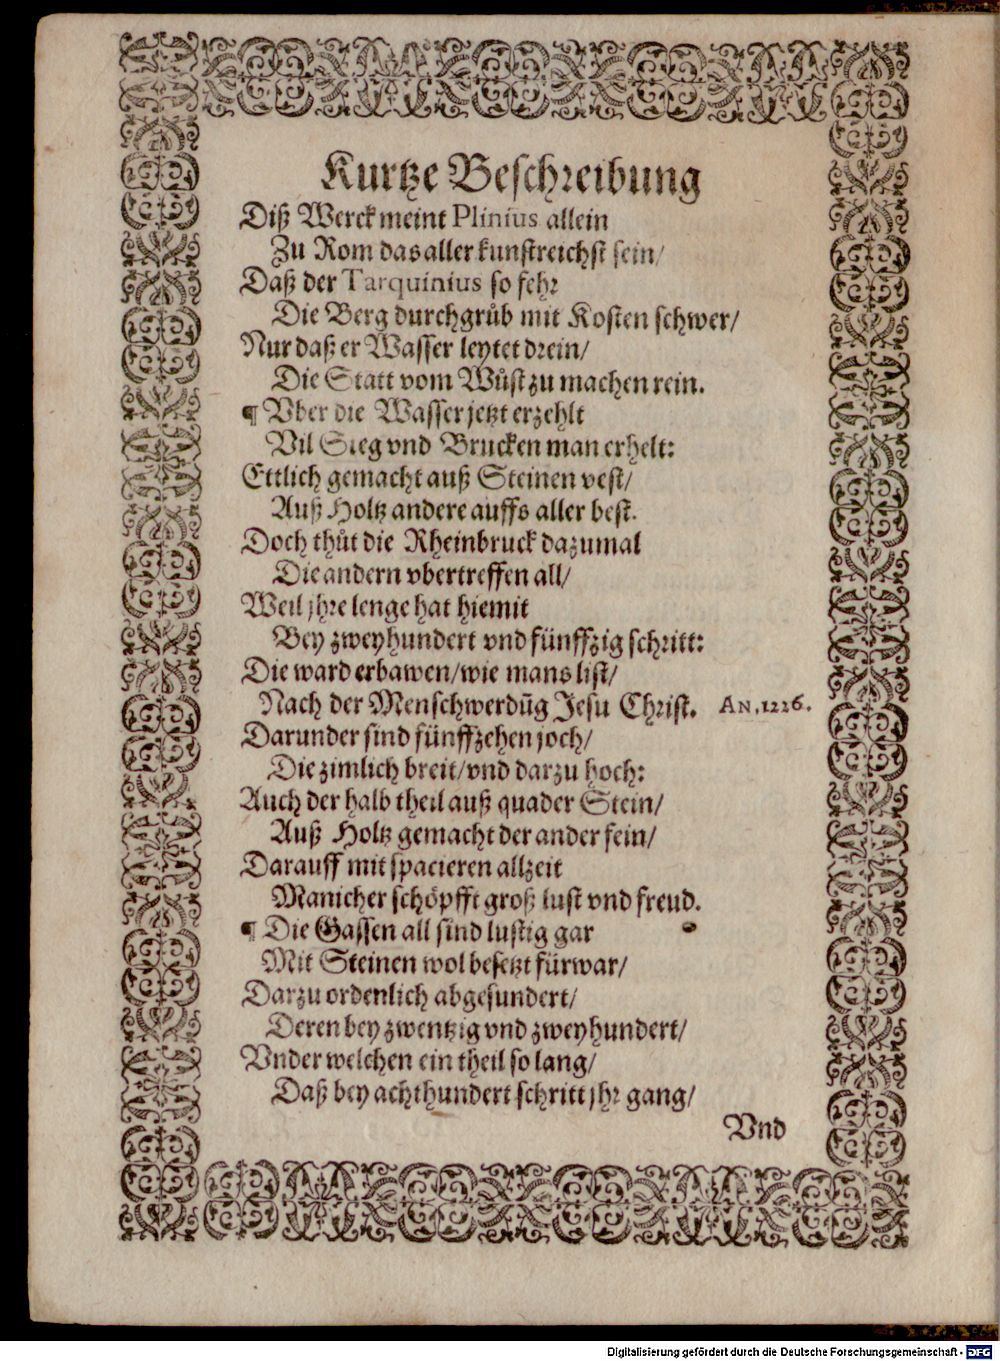 Kurtze Beschreibung
Diß Werck meint Plinius allein
Zu Rom das aller kunstreichst sein/
Daß der Tarquinius so sehr
Die Berg durchgrůb mit Kosten schwer/
Nur daß er Wasser leytet drein/
Die Statt vom Wůst zu machen rein.
¶ Vber die Wasser jetzt erzehlt
Vil Steg vnd Brucken man erhelt:
Ettlich gemacht auß Steinen vest/
Auß Holtz andere auffs aller best.
Doch thůt die Rheinbruck dazumal
Die andern vbertreffen all/
Weil jhre lenge hat hiemit
Bey zweyhundert vnd fünffzig schritt:
Die ward erbawen/wie mans list/
Nach der Menschwerdūg Jesu Christ. AN.1226.
Darunder sind fünffzehen joch/
Die zimlich breit/vnd darzu hoch:
Auch der halb theil auß quader Stein/
Auß Holtz gemacht der ander fein/
Darauff mit spacieren allzeit
Manicher schöpfft groß lust vnd freud.
¶ Die Gassen all sind lustig gar
Mit Steinen wol besetzt fürwar/
Darzu ordenlich abgesundert/
Deren bey zwentzig vnd zweyhundert/
Vnder welchen ein theil so lang/
Daß bey achthundert schritt jhr gang/
Vnd
Digitalisierung gefördert durch die Deutsche Forschungsgemeinschaft - DFG